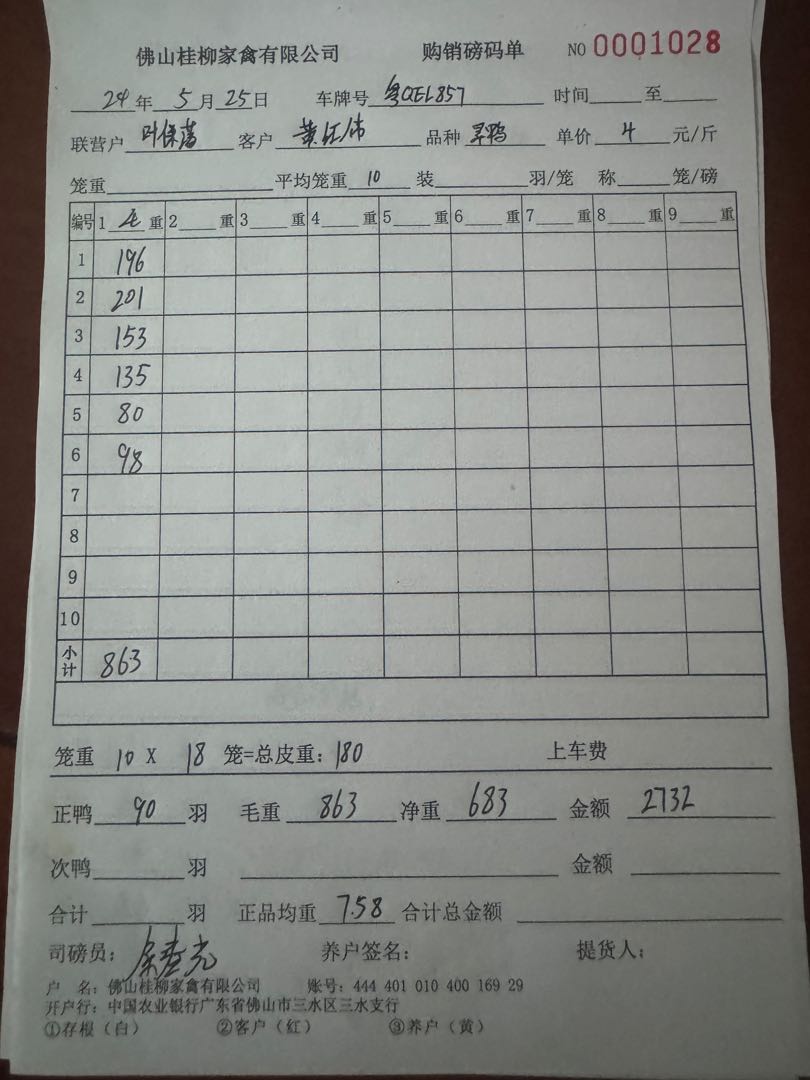 佛山桂柳家禽有限公司 购销磅码单 NO 0001028
24年 5月 25日 车牌号 粤QEL857 时间 至
联营户 叶保 客户 黄 品种 旱鸭 单价 4 元/斤
笼重 平均笼重 10 装 羽/笼 称 笼/磅
编号 1 毛 重 2 重 3 重 4 重 5 重 6 重 7 重 8 重 9 重
1 196
2 201
3 153
4 135
5 80
6 98
7
8
9
10
小计 863
笼重 10 X 18 笼=总皮重: 180 上车费
正鸭 90 羽 毛重 863 净重 683 金额 2732
次鸭 羽 金额
合计 羽 正品均重 7.58 合计总金额
司磅员: 养户签名: 提货人:
户 名: 佛山桂柳家禽有限公司 账号: 444 401 010 400 169 29
开户行: 中国农业银行广东省佛山市三水区三水支行
①存根(白) ②客户(红) ③养户(黄)